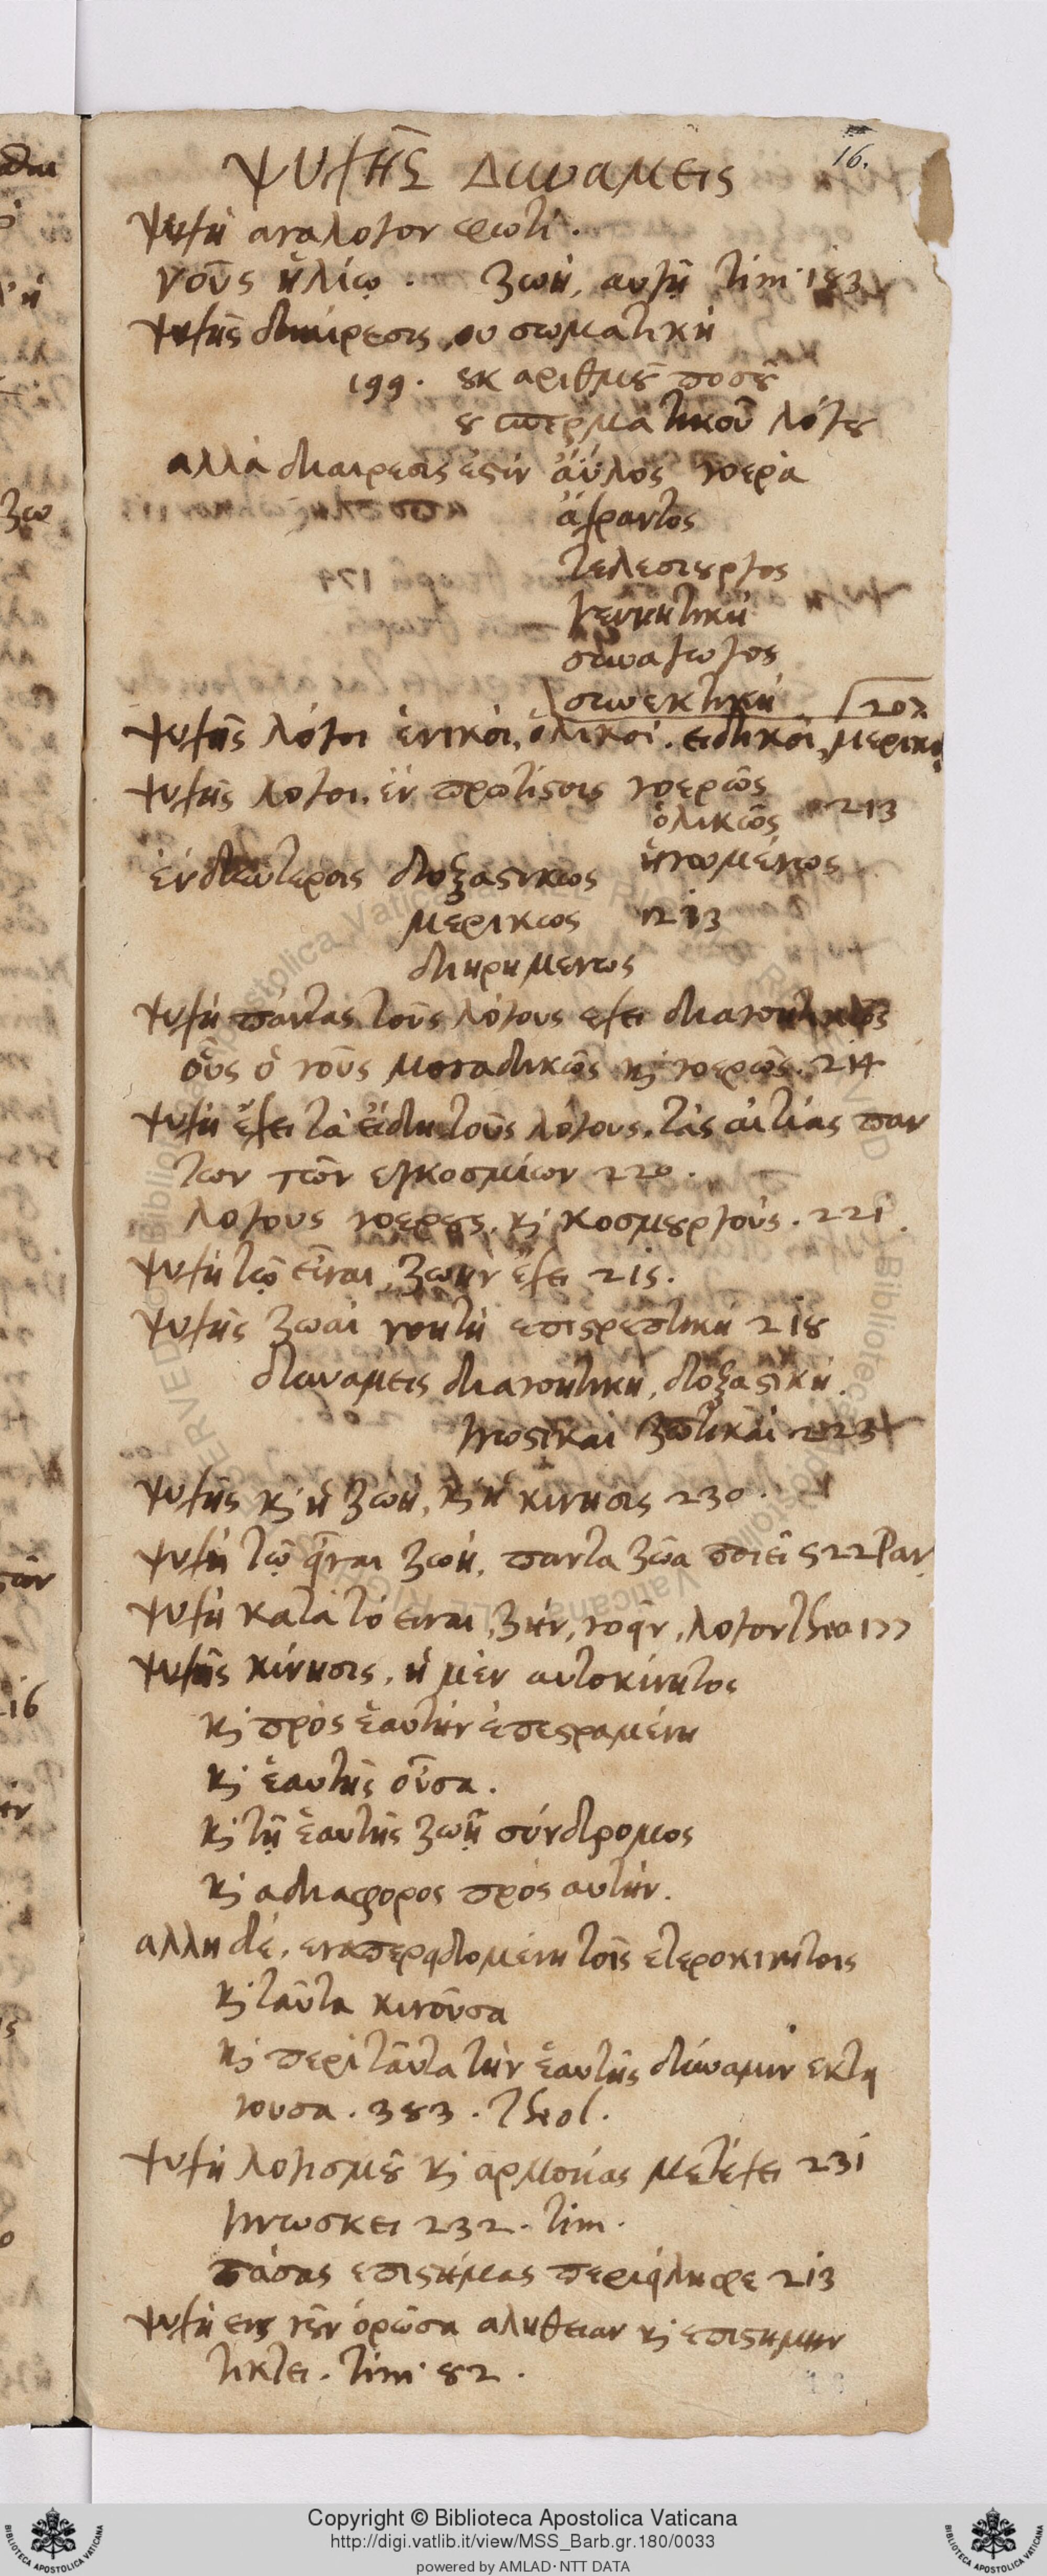 16.
ΨΥΧῆΣ Δυναμεις
Ψυχὴ αναλογον φωτί.
νοῦς ἡλίῳ. ζωὴ, αυτῆ tim. 183
Ψυχῆς διαίρεσις, ου σωματικὴ
199. ουκ αριθμοῦ ποσοῦ
ου σπερματικοῦ λόγου
αλλὰ διαιρεσις ἐστὶν ἄϋλος νοερὰ
ἄχραντος
τελεσιουργος
γεννητικὴ
συναγωγος
συνεκτικὴ 207
Ψυχῆς λόγοι ἑνικοὶ, ὁλικοί. ειδικοὶ, μερικοι
Ψυχῆς λογοι. ἐν πρωτίστοις νοερῶς
ὁλικῶς 213
ἡνωμένως
ἐν δευτεροις δοξαστικως
μερικως 213
διηρημενως
Ψυχὴ πάντας τοὺς λόγους εχει διανοητικῶς
οὓς ὁ νοῦς μοναδικῶς κ νοερῶς. 214
Ψυχὴ ἔχει τὰ εἴδη τοὺς λόγους. τὰς αἰτίας παν
των τῶν εγκοσμίων 220.
λογους νοερους. κ κοσμουργούς. 221.
Ψυχὴ τῷ εἶναι, ζωὴν ἔχει 215.
Ψυχῆς ζωαὶ νοητὴ επιστρεπτικὴ 218
δυναμεις διανοητικὴ, δοξαστικὴ.
γνωστικαὶ ζωτικαὶ 223
Ψυχῆς κ ἡ ζωὴ, κ ἡ κινησις 230.
Ψυχὴ τῷ εἶναι ζωὴ, παντα ζῶα ποιεῖ 522 Par.
Ψυχὴ κατὰ τὸ ειναι, ζῆν, νοεῖν, λογον theo 177
Ψυχῆς κίνησις, ἡ μὲν αυτοκίνητος
κ πρὸς ἑαυτὴν ἐπεστραμένη
κ ἑαυτῆς οὖσα.
κ τῆ ἑαυτῆς ζωῆ σύνδρομος
κ αδιαφορος πρὸς αυτὴν.
αλλη δὲ, εναπερειδομένη τοῖς ετεροκινητοις
κ ταῦτα κινοῦσα
κ περὶ ταῦτα τὴν ἑαυτῆς δύναμιν εκτει
νουσα. 383. theol.
Ψυχὴ λογισμοῦ κ αρμονίας μετέχει 231
γινωσκει 232. tim.
πάσας επιστήμας περιείληφε 213
Ψυχὴ εις νοῦν ὁρῶσα αληθειαν κ επιστημην
τικτει. tim. 82.
Copyright © Biblioteca Apostolica Vaticana
http://digi.vatlib.it/view/MSS_Barb.gr.180/0033
powered by AMLAD · NTT DATA
BIBLIOTECA APOSTOLICA VATICANA
BIBLIOTECA APOSTOLICA VATICANA